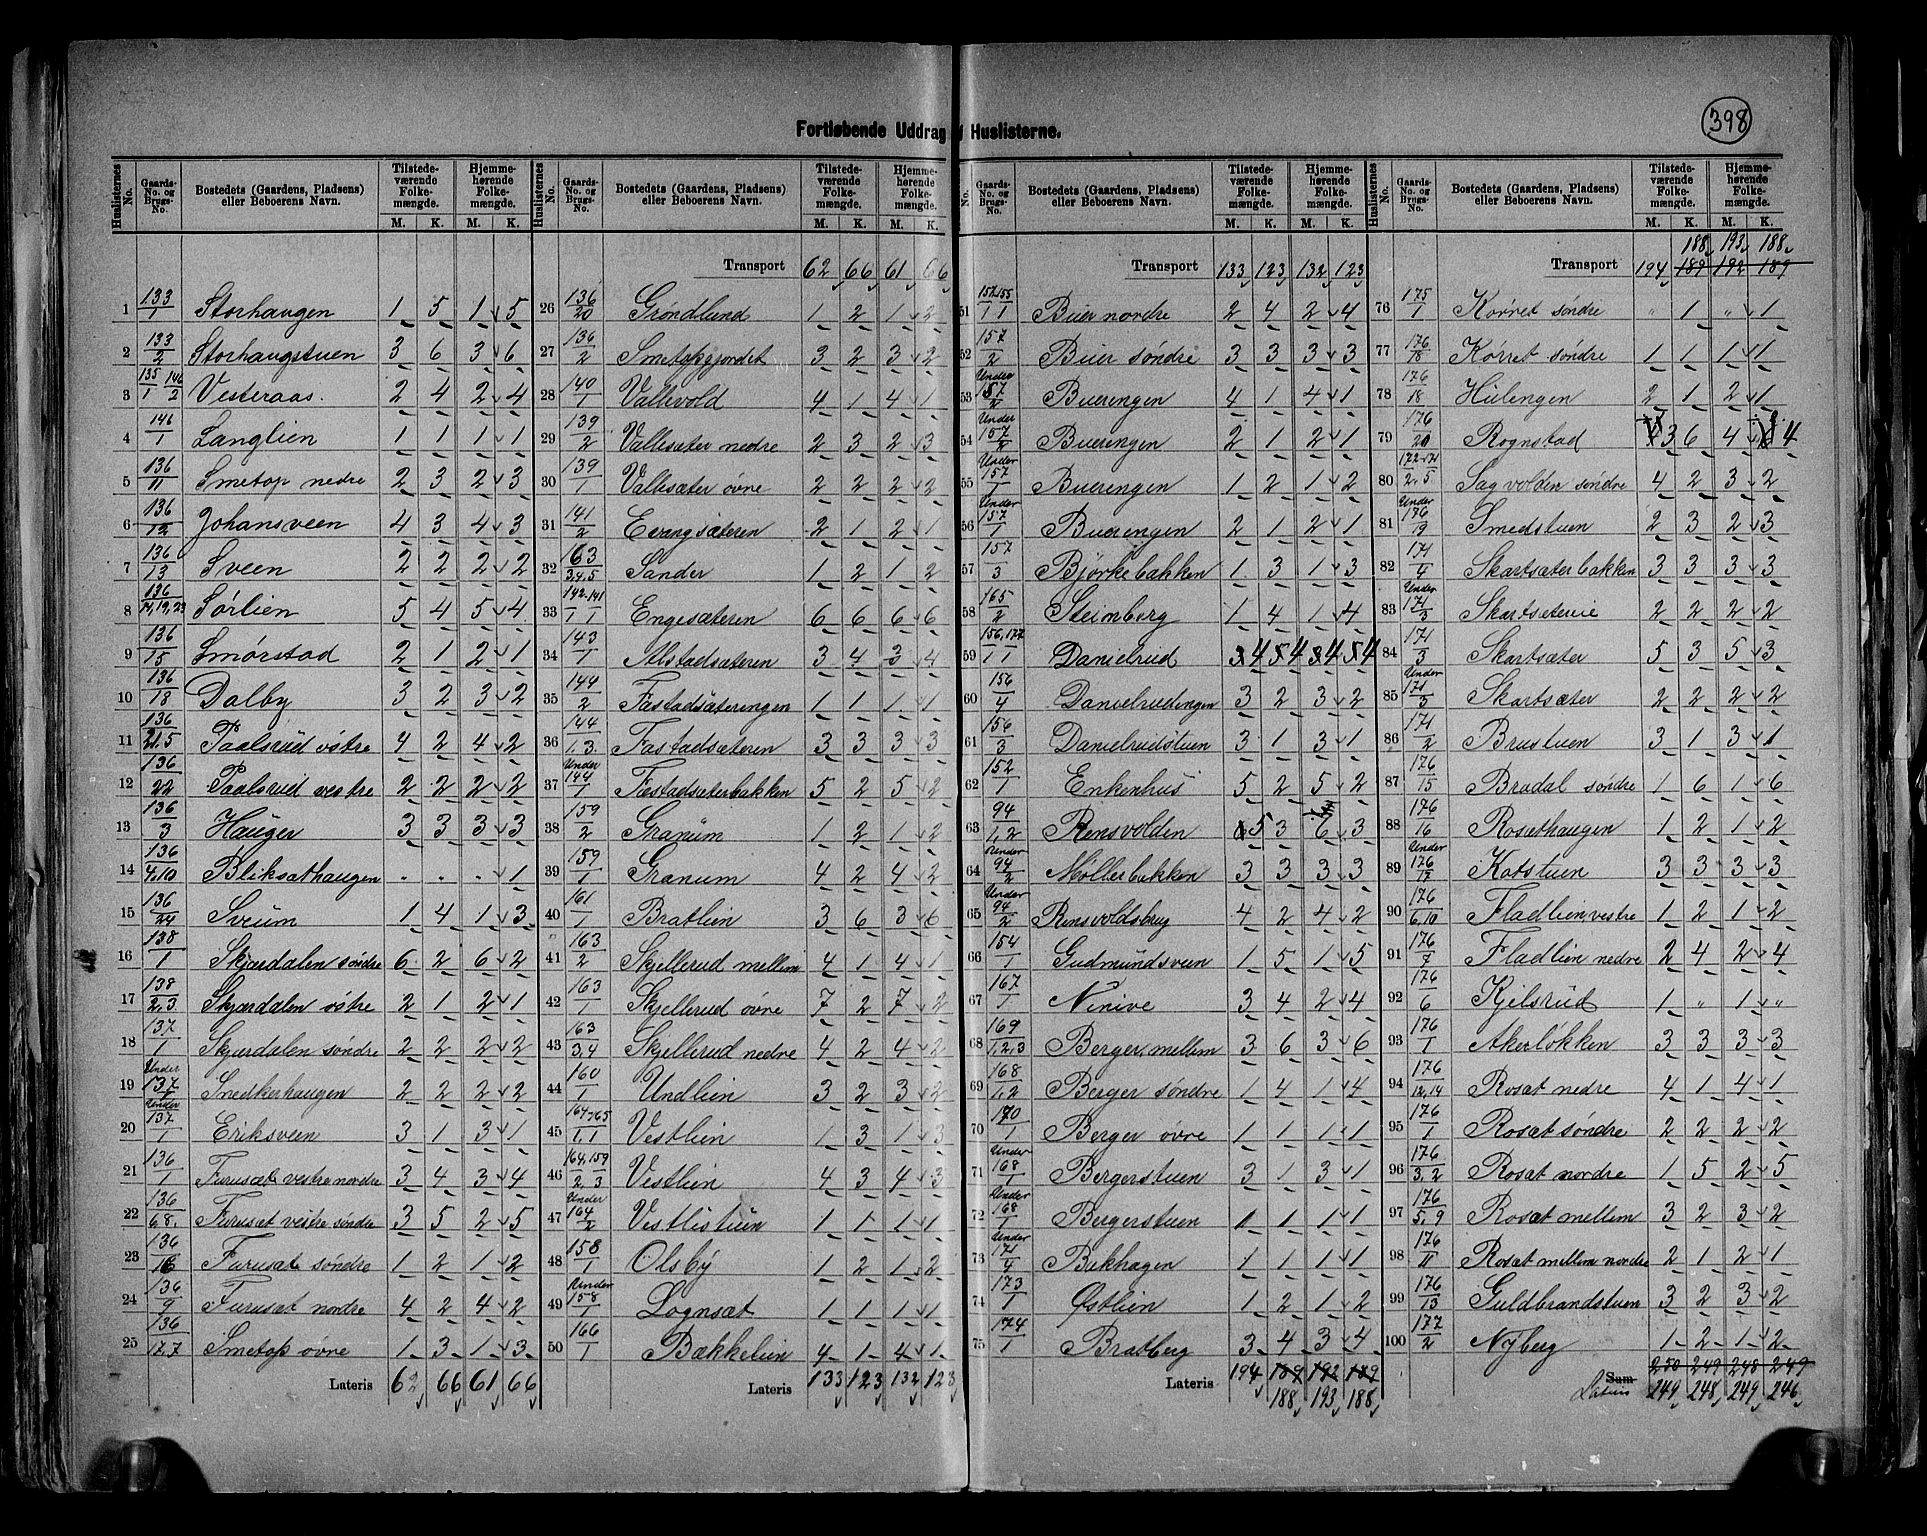 398
Fortløbende Uddrag f Huslisterne.
Huslisternes No. Gaards-No. og Brugs-No. Bostedets (Gaardens, Pladsens) eller Beboerens Navn. Tilstedeværende Folkemængde. M. K. Hjemmehørende Folkemængde. M. K.
1 133/1 Storhaugen 1 5 1 5
2 133/2 Storhaugstuen 3 6 3 6
3 135/1 146/2 Vesteraas. 2 4 2 4
4 146/1 Langlien 1 1 1 1
5 136/11 Smetop nedre 2 3 2 3
6 136/12 Johansveen 4 3 4 3
7 136/13 Sveen 2 2 2 2
8 136/14,19,23 Sørlien 5 4 5 4
9 136/15 Smørstad 2 1 2 1
10 136/18 Dalby 3 2 3 2
11 136/21.5 Paalsrud østre 4 2 4 2
12 136/22 Paalsrud vestre 2 2 2 2
13 136/3 Hauger 3 3 3 3
14 136/4,10 Bliksæthaugen . . . 1
15 136/24 Sveum 1 4 1 3
16 138/1 Skjærdalen søndre 6 2 6 2
17 138/2,3 Skjærdalen østre 2 1 2 1
18 137/1 Skjærdalen søndre 2 2 2 2
19 Under 137/1 Snedkerhaugen 2 2 2 2
20 Under 137/1 Eriksveen 3 1 3 1
21 136/1 Furusæt vestre nordre 3 4 3 4
22 136/6,8. Furusæt vestre søndre 3 5 2 5
23 136/16 Furusæt søndre 1 2 1 2
24 136/9 Furusæt nordre 4 2 4 2
25 136/17,7 Smetop øvre 1 3 1 3
Lateris 62 66 61 66
Huslisternes No. Gaards-No. og Brugs-No. Bostedets (Gaardens, Pladsens) eller Beboerens Navn. Tilstedeværende Folkemængde. M. K. Hjemmehørende Folkemængde. M. K.
Transport 62 66 61 66
26 136/20 Grøndlund 1 2 1 2
27 136/2 Smetopgjordet 3 2 3 2
28 140/1 Vallevold 4 1 4 1
29 139/2 Vallesæter nedre 2 3 2 3
30 139/1 Vallesæter øvre 2 2 2 2
31 141/2 Evingsæteren 2 1 2 1
32 163/3,4,5 Sander 1 2 1 2
33 142-141/1 1 Engesæteren 6 6 6 6
34 143/1 Alstadsæteren 3 4 3 4
35 144/2 Fastadsæteringen 1 1 1 1
36 144/1,3. Fastadsæteren 3 3 3 3
37 Under 144/1 Fæstadsæterbakken 5 2 5 2
38 159/2 Granum 1 2 1 2
39 159/1 Granum 4 2 4 2
40 161/1 Bratlien 3 6 3 6
41 163/2 Skjellerud mellem 4 1 4 1
42 163/1 Skjellerud øvre 7 2 7 2
43 163/3,4 Skjellerud nedre 4 2 4 2
44 160/1 Undlien 3 2 3 2
45 164,165/1,1 Vestlien 1 3 1 3
46 164,159/2 3 Vestlien 4 3 4 3
47 Under 164/2 Vestlistuen 1 1 1 1
48 158/1 Olsby 1 2 1 2
49 Under 158/1 Lognsæt 1 1 1 1
50 166/1 Bækkelien 4 1 4 1
Lateris 133 123 132 123
No. Gaards-No. og Brugs-No. Bostedets (Gaardens, Pladsens) eller Beboerens Navn. Tilstedeværende Folkemængde. M. K. Hjemmehørende Folkemængde. M. K.
Transport 133 123 132 123
51 157,155/1 1 Buer nordre 2 4 2 4
52 157/2 Buer søndre 3 3 3 3
53 Under 157/2 Buerengen 4 1 4 1
54 Under 157/2 Buerengen 2 1 2 1
55 Under 157/1 Buerengen 1 2 1 2
56 Under 157/1 Buerengen 2 1 2 1
57 157/3 Bjørkebakken 1 3 1 3
58 165/2 Steimberg 1 4 1 4
59 156,177/1 1 Danielrud 3 4 5 4 3 4 5 4
60 156/4 Danielrudengen 3 2 3 2
61 156/3 Danielrudstuen 3 1 3 1
62 152/1 Enkenhus 5 2 5 2
63 94/1,2 Rensvolden 5 3 6 3
64 Under 94/2 Møllerbakken 3 3 3 3
65 Under 94/2 Rensvoldsbrug 4 2 4 2
66 154/1 Gudmundsveen 1 5 1 5
67 167/1 Ninive 3 4 2 4
68 169/1,2,3 Berger, mellem 3 6 3 6
69 168/1,2 Berger søndre 1 4 1 4
70 170/1 Berger øvre 1 1 1 1
71 Under 168/1 Bergerstuen 3 1 3 1
72 Under 168/1 Bergerstuen 1 1 1 1
73 Under 171/4 Bækhagen 1 1 1 1
74 173/1 Østlien 1 2 1 2
75 174/1 Bratberg 3 4 3 4
Lateris 194 189 192 189
188 193 188
Huslisternes No. Gaards-No. og Brugs-No. Bostedets (Gaardens, Pladsens) eller Beboerens Navn. Tilstedeværende Folkemængde. M. K. Hjemmehørende Folkemængde. M. K.
188 193 188
Transport 194 189 192 189
76 175/1 Kørret søndre " 1 " 1
77 176/18 Kørret søndre 1 1 1 1
78 176/18 Hulengen 2 1 2 1
79 176/20 Rognstad 3 6 4 4
80 172-171/2,5 Sagvolden søndre 4 2 3 2
81 Under 176/19 Smedstuen 2 3 2 3
82 171/4 Skartsæterbakken 3 3 3 3
83 Under 171/3 Skartsætereie 2 2 2 2
84 171/3 Skartsæter 5 3 5 3
85 Under 171/3 Skartsæter 2 2 2 2
86 171/2 Brustuen 3 1 3 1
87 176/15 Bradal søndre 1 6 1 6
88 176/16 Rosæthaugen 1 2 1 2
89 Under 176/17 Kotstuen 3 3 3 3
90 176/6,10 Fladlien, vestre 1 2 1 2
91 176/7 Fladlien nedre 2 4 2 4
92 176/6 Kjelsrud 1 " 1 "
93 176/1 Akerløkken 3 3 3 3
94 176/12,14 Rosæt nedre 4 1 4 1
95 176/1 Rosæt søndre 2 2 2 2
96 176/3,2 Rosæt nordre 1 5 2 5
97 176/5,9 Rosæt mellem 3 2 3 2
98 176/11 Rosæt mellem nordre 2 1 2 1
99 176/13 Guldbrandstuen 3 2 3 2
100 177/2 Nyberg 1 2 1 2
Sum 250 249 248 249
Lateris 249 248 249 246